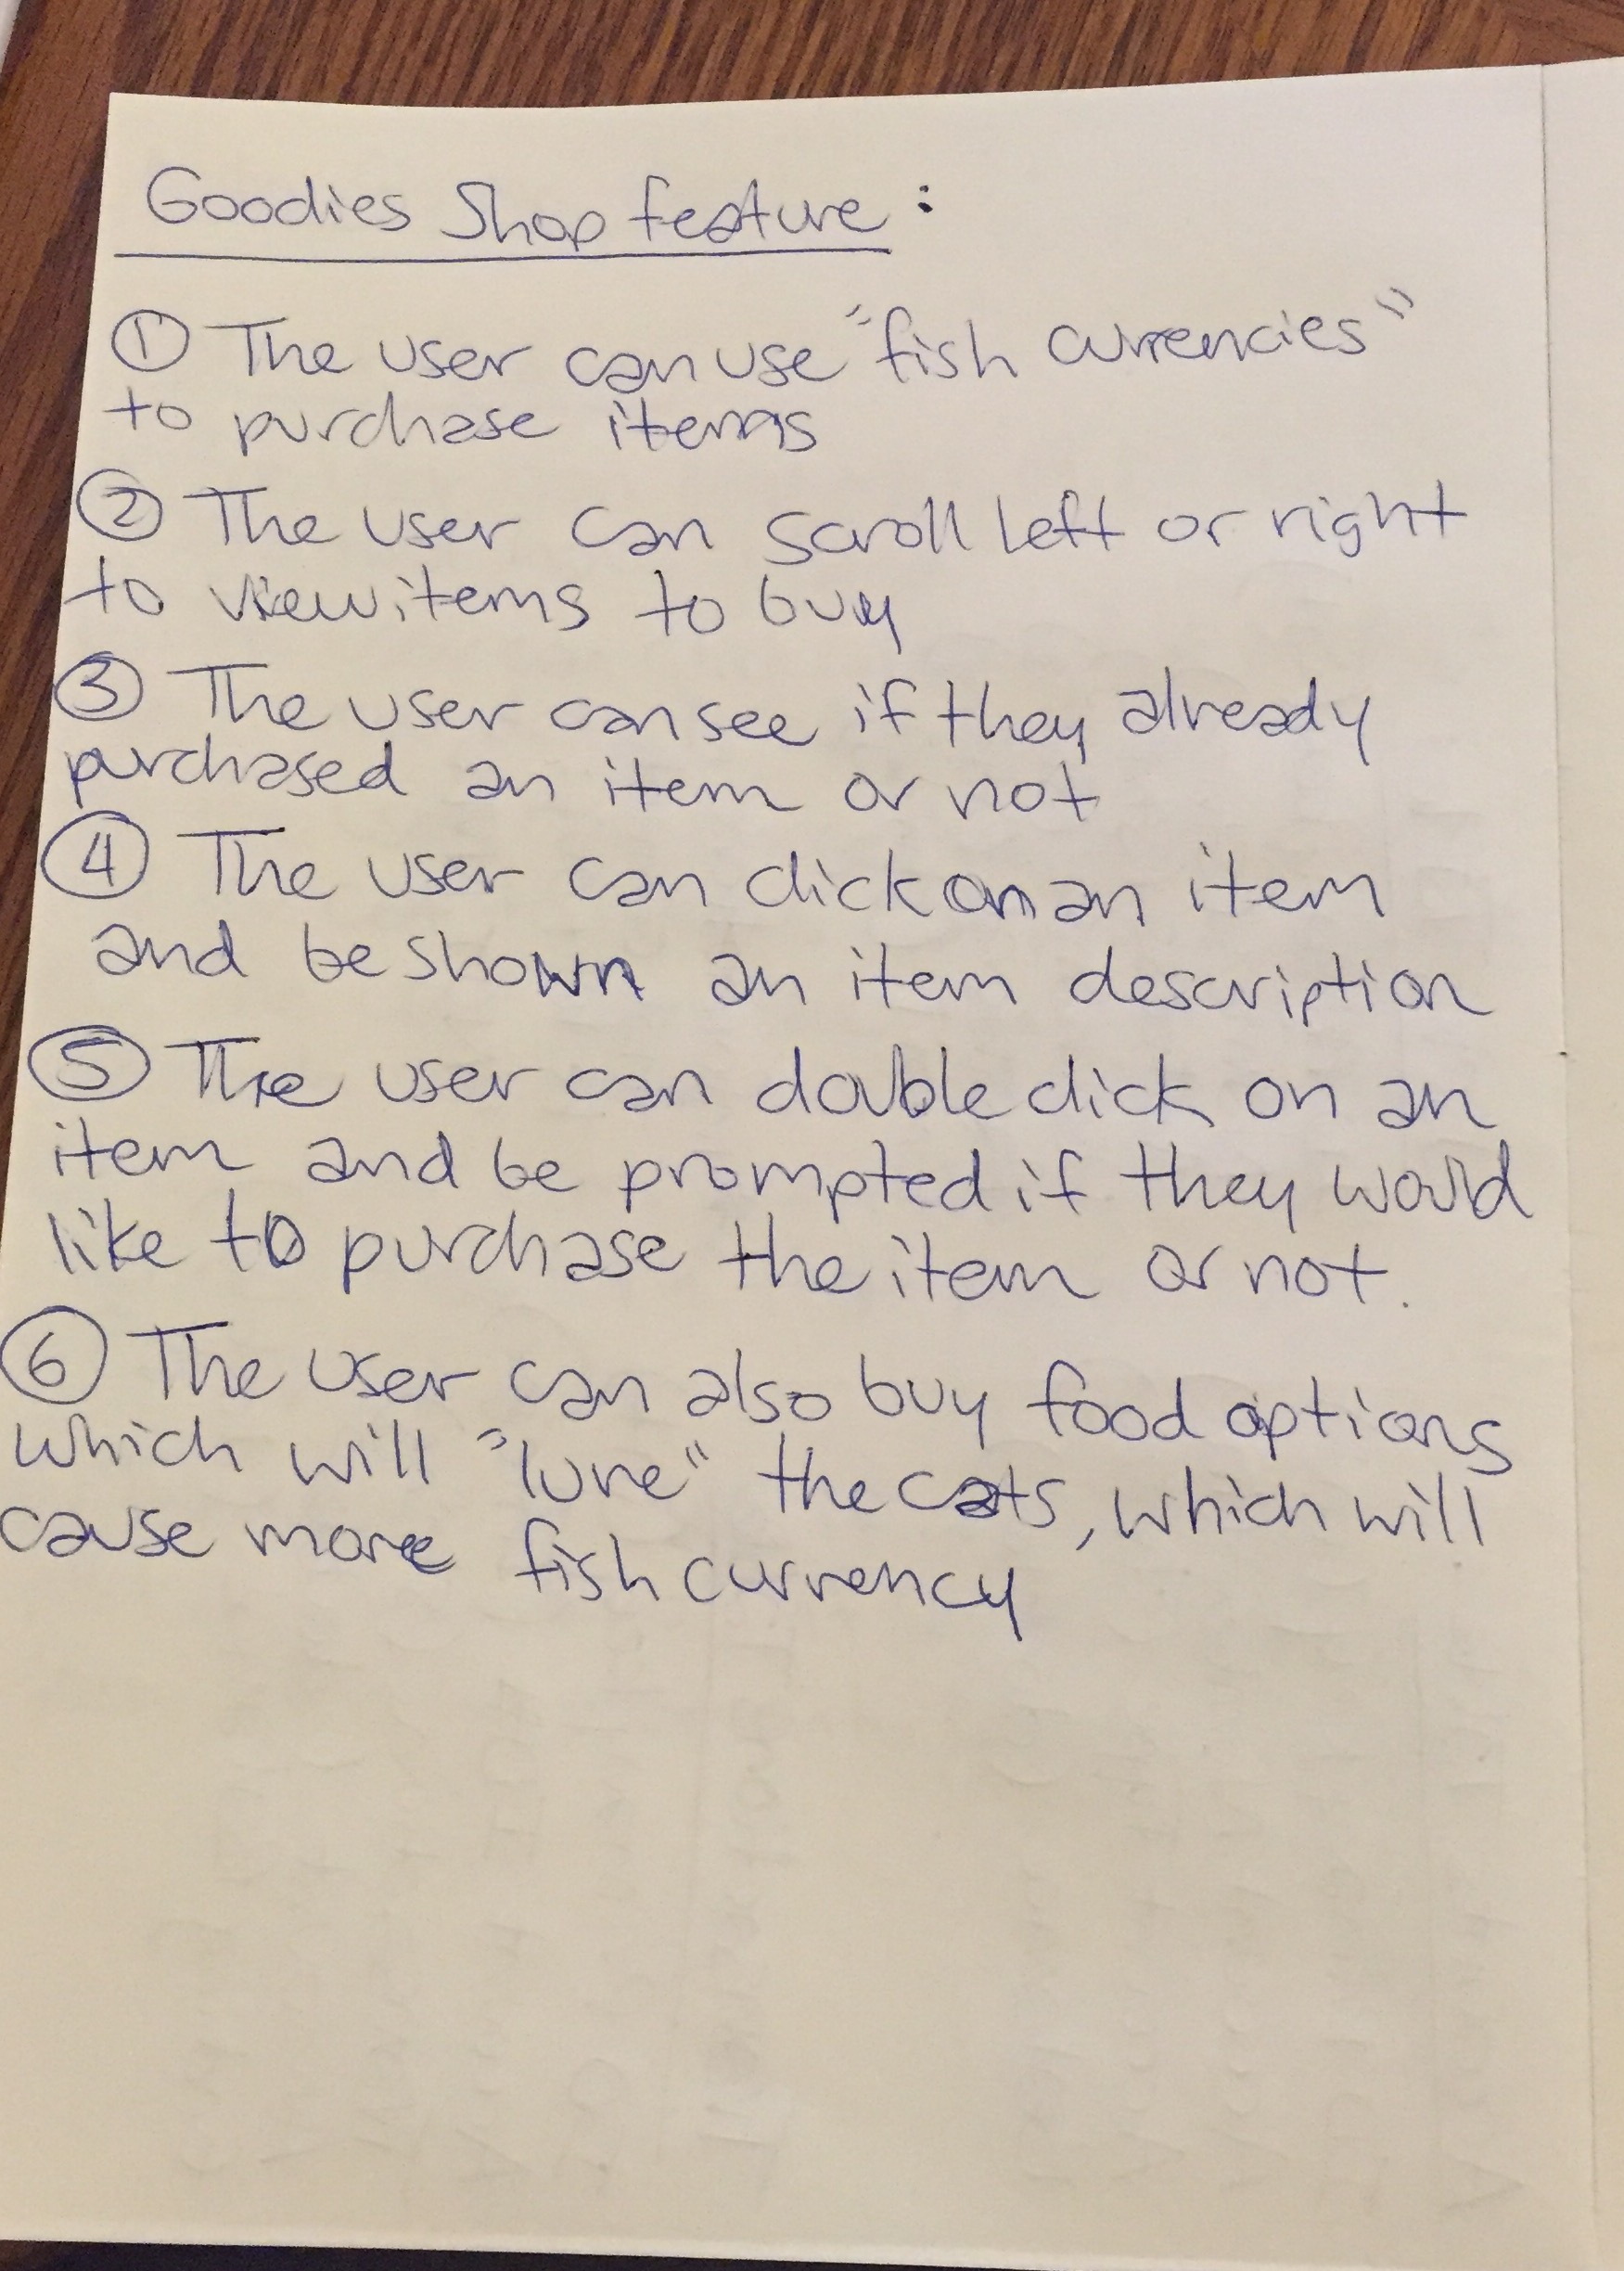 Goodies Shop feature :
① The user can use "fish currencies"
to purchase items
② The user can scroll left or right
to view items to buy
③ The user can see if they already
purchased an item or not
④ The user can click on an item
and be shown an item description
⑤ The user can double click on an
item and be prompted if they would
like to purchase the item or not.
⑥ The user can also buy food options
which will "lure" the cats, which will
cause more fish currency